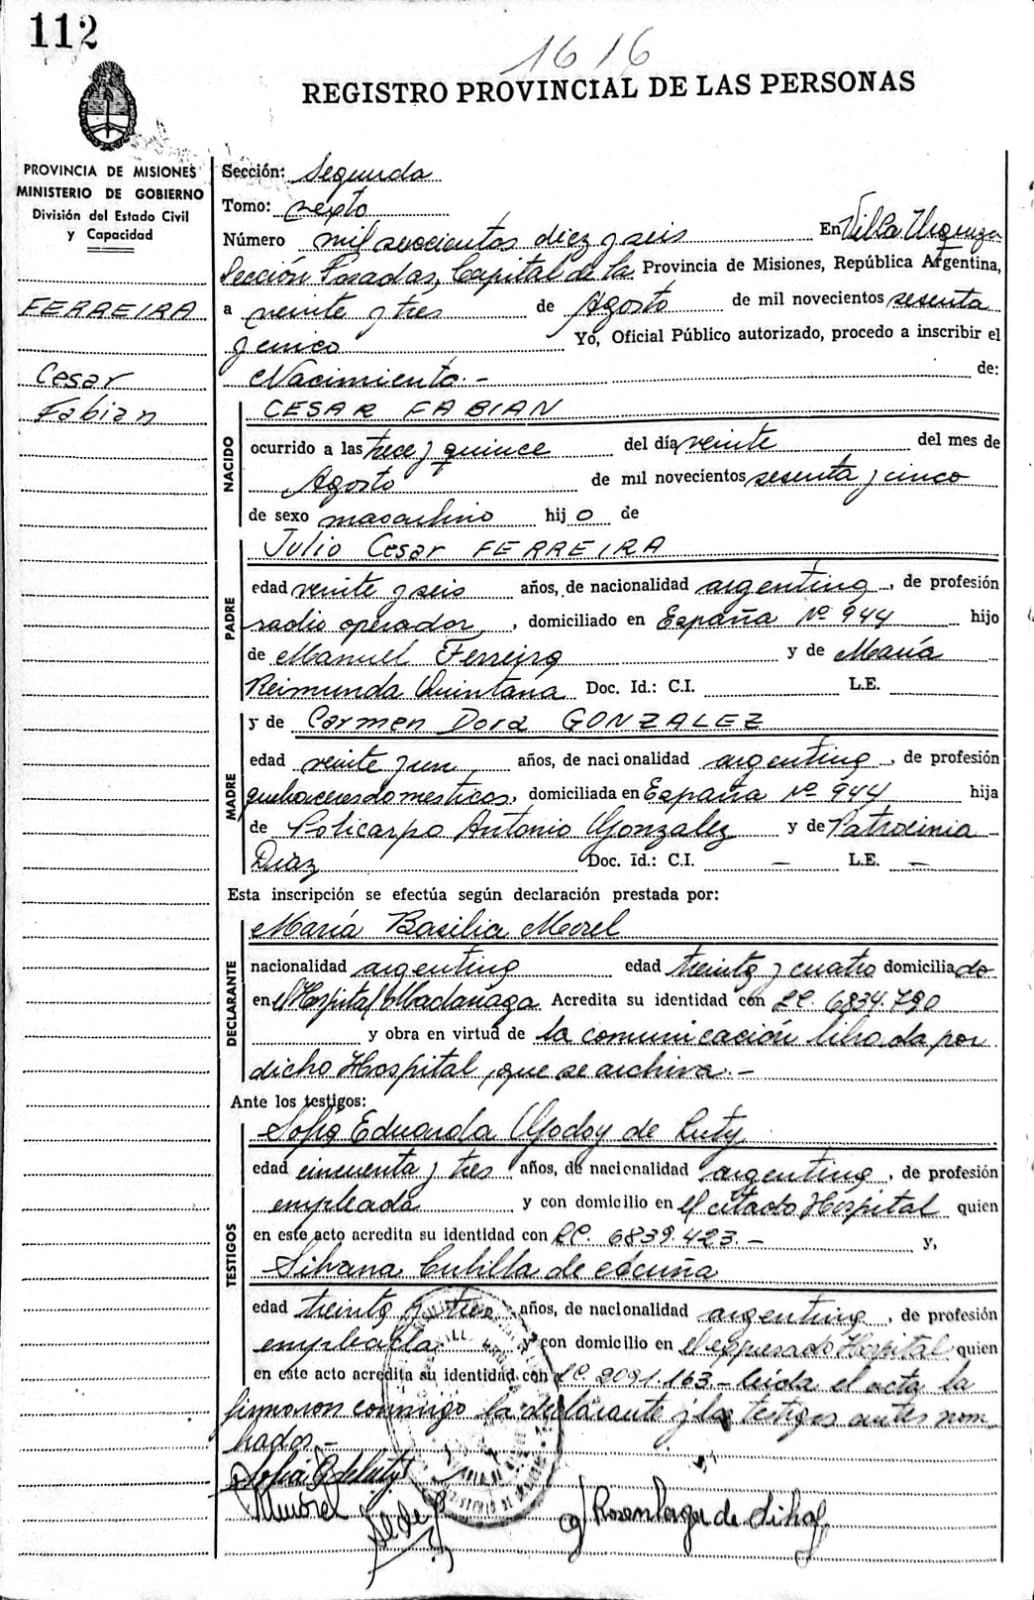 112
1616
REGISTRO PROVINCIAL DE LAS PERSONAS
PROVINCIA DE MISIONES
MINISTERIO DE GOBIERNO
División del Estado Civil
y Capacidad
FERREIRA
Cesar
Fabian
Sección: Segunda
Tomo: sexto
Número mil seiscientos diez y seis En Villa Urquiza
Sección Posadas, Capital de la Provincia de Misiones, República Argentina,
a veinte y tres de Agosto de mil novecientos sesenta
y cinco Yo, Oficial Público autorizado, procedo a inscribir el
Nacimiento.- de:
NACIDO
CESAR FABIAN
ocurrido a las trece y quince del día veinte del mes de
Agosto de mil novecientos sesenta y cinco
de sexo masculino hijo de
PADRE
Julio Cesar FERREIRA
edad veinte y seis años, de nacionalidad argentina, de profesión
radio operador, domiciliado en España Nº 944 hijo
de Manuel Ferreira y de María
Reimunda Quintana Doc. Id.: C.I. L.E.
MADRE
y de Carmen Dora GONZALEZ
edad veinte y un, años, de nacionalidad argentina, de profesión
quehaceres domesticos, domiciliada en España Nº 944 hija
de Policarpo Antonio Gonzalez y de Patrocinia
Diaz Doc. Id.: C.I. — L.E. —
Esta inscripción se efectúa según declaración prestada por:
DECLARANTE
María Basilia Morel
nacionalidad argentina edad treinta y cuatro domiciliado
en el Hospital Madariaga Acredita su identidad con LC. 6834.790
y obra en virtud de la comunicación librada por
dicho Hospital, que se archiva.-
Ante los testigos:
TESTIGOS
Sofia Eduarda Godoy de Luty
edad cincuenta y tres años, de nacionalidad argentina, de profesión
empleada y con domicilio en el citado Hospital quien
en este acto acredita su identidad con LC. 6839.423.- y,
Silvana Cubilla de Acuña
edad treinta y tres años, de nacionalidad argentina, de profesión
empleada y con domicilio en el expresado Hospital quien
en este acto acredita su identidad con LC. 2091.163.- Leida el acta la
firmaron conmigo la declarante y los testigos antes nom
brados.-
Sofia G de Luty
MBMorel